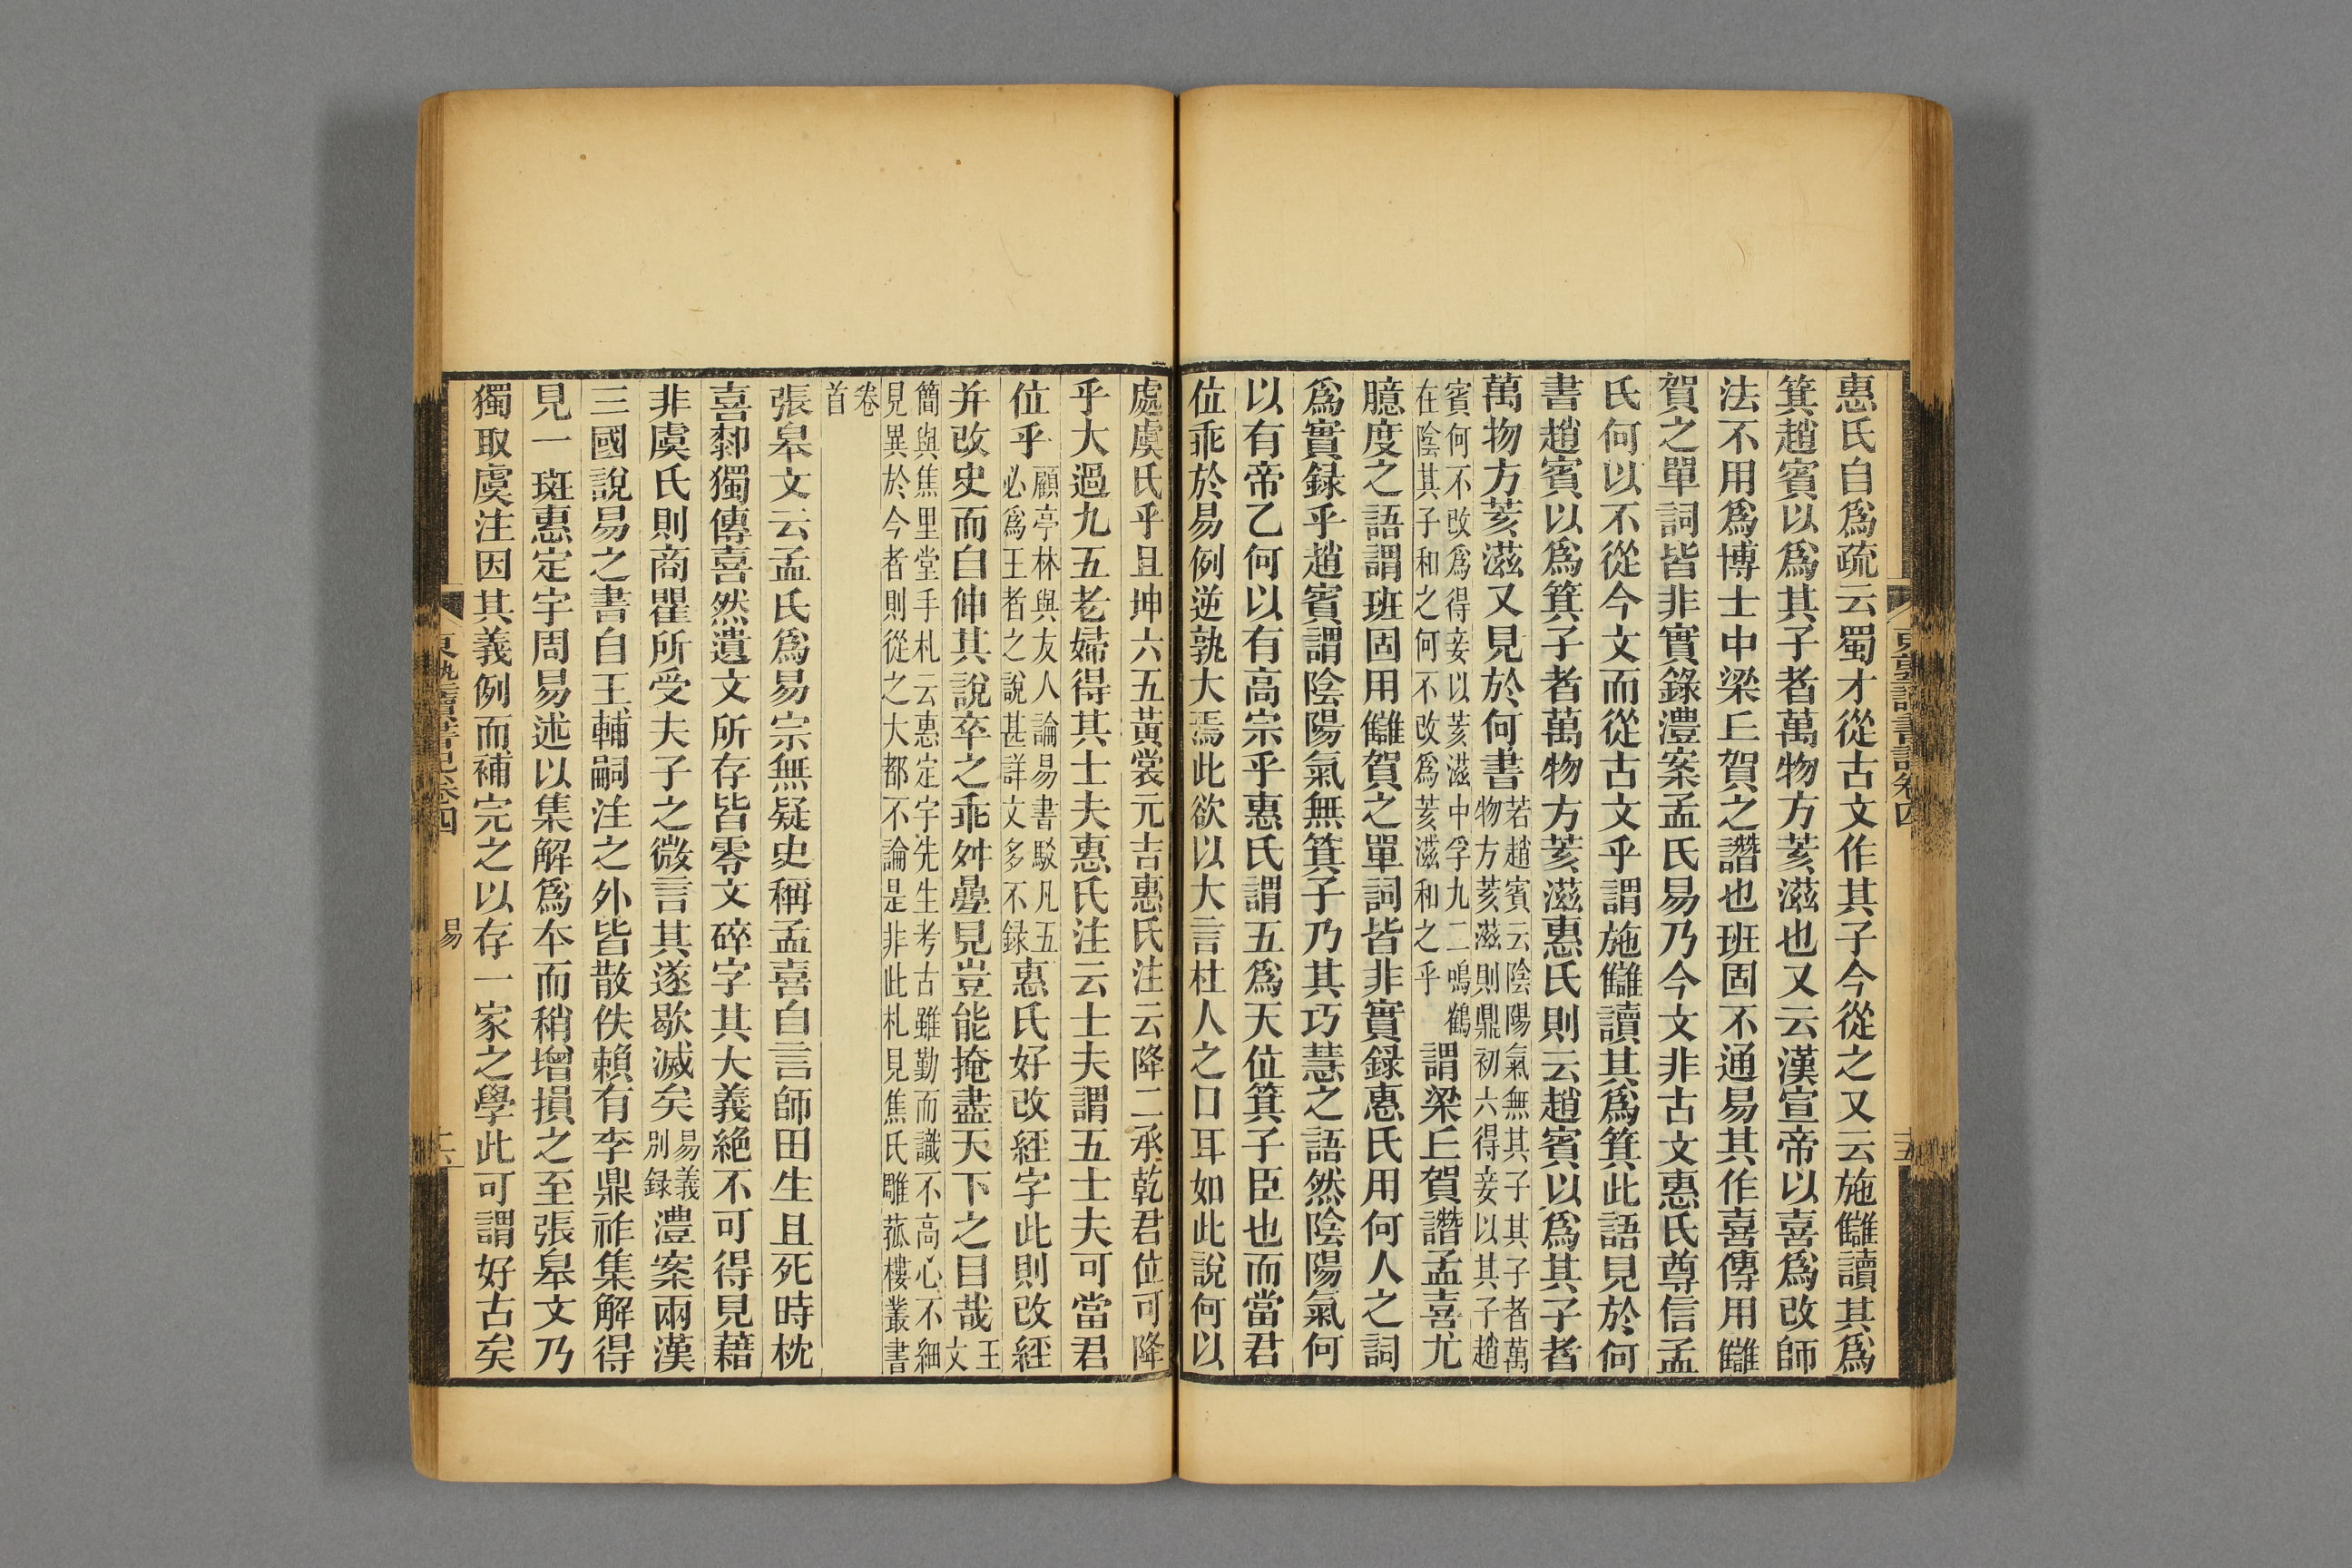 惠氏自爲疏云蜀才從古文作其子今從之又云施讎讀其爲
箕趙賓以爲其子者萬物方荄滋也又云漢宣帝以喜爲改師
法不用爲博士中梁丘賀之譖也班固不通易其作喜傳用讎
賀之單詞皆非實錄澧案孟氏易乃今文非古文惠氏尊信孟
氏何以不從今文而從古文乎謂施讎讀其爲箕此語見於何
書趙賓以爲箕子者萬物方荄滋惠氏則云趙賓以爲其子者
萬物方荄滋又見於何書
若趙賓云陰陽氣無其子其子者萬
物方荄滋則鼎初六得妾以其子趙
賓何不改爲得妾以荄滋中孚九二鳴鶴
在陰其子和之何不改爲荄滋和之乎
謂梁丘賀譖孟喜尤
臆度之語謂班固用讎賀之單詞皆非實録惠氏用何人之詞
爲實録乎趙賓謂陰陽氣無箕子乃其巧慧之語然陰陽氣何
以有帝乙何以有高宗乎惠氏謂五爲天位箕子臣也而當君
位乖於易例逆孰大焉此欲以大言杜人之口耳如此說何以
處虞氏乎且坤六五黃裳元吉惠氏注云降二承乾君位可降
乎大過九五老婦得其士夫惠氏注云士夫謂五士夫可當君
位乎
顧亭林與友人論易書駁凡五
必爲王者之說甚詳文多不録
惠氏好改經字此則改經
并改史而自伸其說卒之乖舛疊見豈能掩盡天下之目哉
王
文
簡與焦里堂手札云惠定宇先生考古雖勤而識不高心不細
見異於今者則從之大都不論是非此札見焦氏雕菰樓叢書
卷
首
張皋文云孟氏爲易宗無疑史稱孟喜自言師田生且死時枕
喜厀獨傳喜然遺文所存皆零文碎字其大義絶不可得見藉
非虞氏則商瞿所受夫子之微言其遂歇滅矣
易義
別録
澧案兩漢
三國說易之書自王輔嗣注之外皆散佚賴有李鼎祚集解得
見一斑惠定宇周易述以集解爲本而稍增損之至張皋文乃
獨取虞注因其義例而補完之以存一家之學此可謂好古矣
東塾讀書記卷四
易